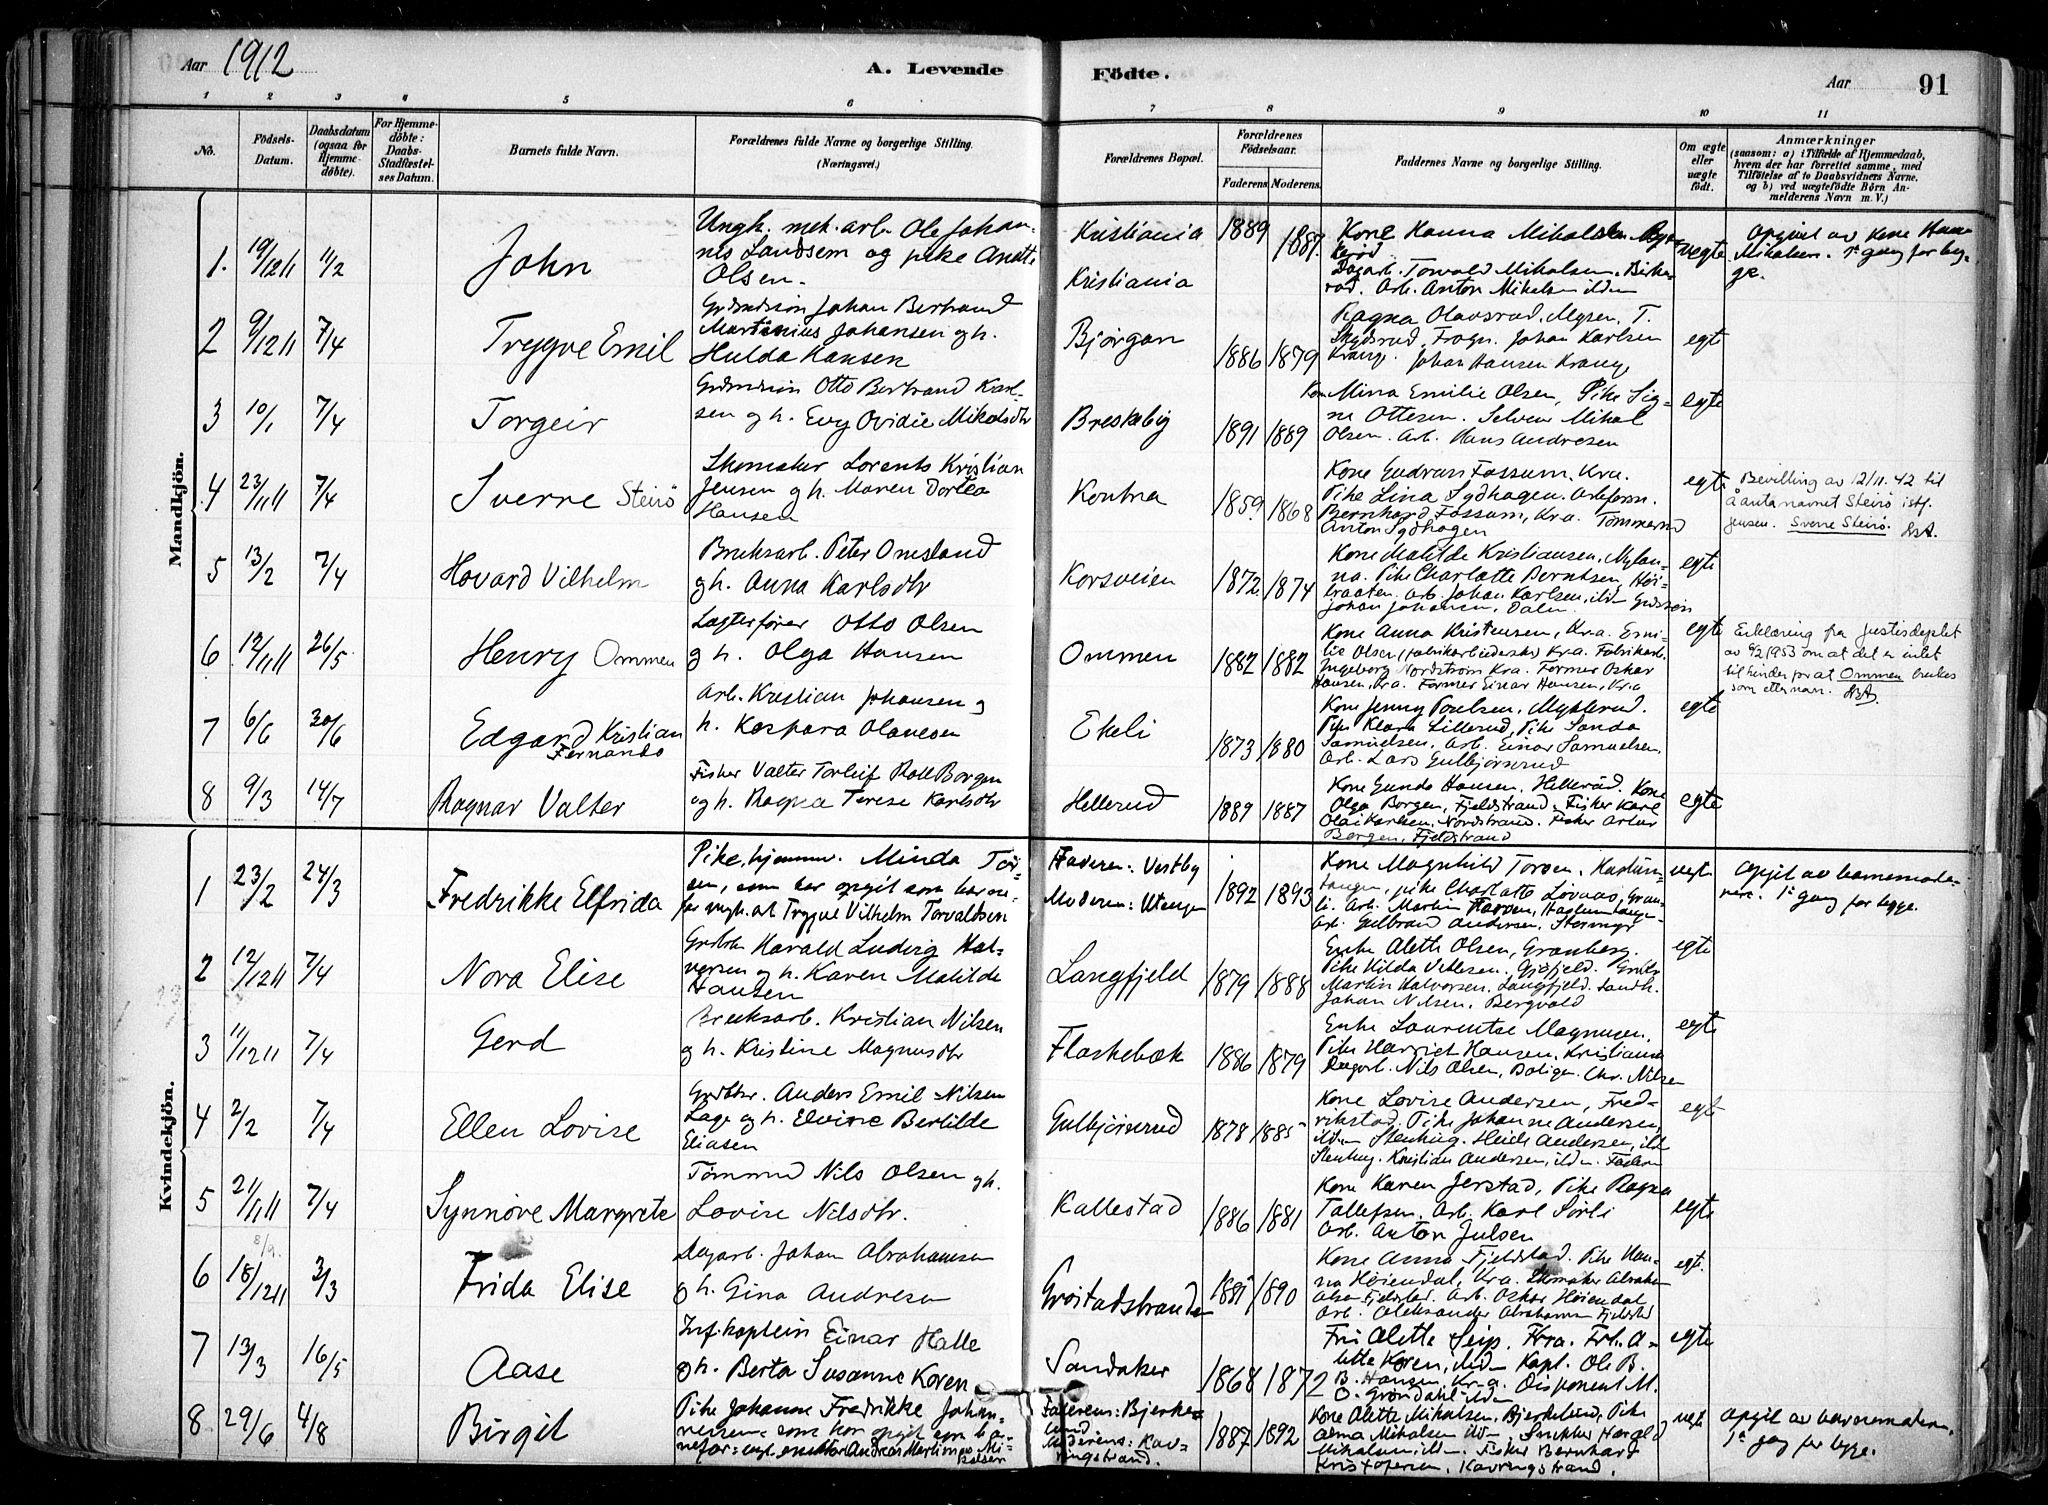 Aar 1912
A. Levende Födte.
Aar 91
1 2 3 4 5 6 7 8 9 10 11
No.
Födsels-Datum.
Daabsdatum (ogsaa for Hjemmedöbte).
For Hjemmedöbte: Daabs-Stadfæstelses Datum.
Barnets fulde Navn.
Forældrenes fulde Navne og borgerlige Stilling. (Næringsvei.)
Forældrenes Bopæl.
Forældrenes Födselsaar.
Faderens. Moderens.
Faddernes Navne og borgerlige Stilling.
Om ægte eller uægte födt.
Anmærkninger (saasom: a) i Tilfælde af Hjemmedaab, hvem der har forrettet samme, med Tilföielse af to Daabsvidners Navne, og b) ved uægtefödte Börn Anmelderens Navn m. V.)
Mandkjön.
1. 19/12 11 11/2
John
Ungk. mek. arb. Ole Johannes Landsem og pike Anette Olsen.
Kristiania
Kristiania
1889 1887
Kone Hanna Mikalsen
Dagarb. Torvald Mikalsen. Arb. Anton Mikalsen ildm
uegte
Opgivet av kone Hanna Mikalsen. 1ste gang for begge.
2 9/12 11 7/4
Trygve Emil
Grdmdssøn Johan Bertrand Martinius Johansen og h. Hulda Hansen
Bjørgan
1886 1879
Ragna Olavsrud, Mysen. T. Skydsrud, Frogn. Johan Karlsen Krange. Johan Hansen Krange
egte
3 10/1 7/4
Torgeir
Grdmdssøn Otto Bertrand Karlsen og h. Evy Ovidie Mikalsdtr
Breskeby
1891 1889
Kone Mina Emilie Olsen, Pike Signe Ottesen. Selveier Mikal Olsen. Arb. Hans Andresen
egte
4 23/11 11 7/4
Sverre Steirö
Skomaker Lorents Kristian Jensen og h. Maren Dortea Hansen
Kontra
1859 1868
Kone Gudrun Fossum, Kra. Pike Lina Sydhagen. Arbform. Bernhard Fossum, Kra. Tømmerm Anton Sydhagen
egte
Bevilling av 12/11. 42 til å anta navnet Steirö istf. Jensen. Sverre Steirö.
5 13/2 7/4
Hovard Vilhelm
Bruksarb. Peter Onesland og h. Anna Karlsdtr
Korsveien
1872 1874
Kone Matilde Kristiansen, Myland. Pike Charlotte Berntsen, Høibraaten. Arb. Johan Karlsen, ildm Grdssøn Johan Johansen, Dalen.
egte
6 12/11 11 26/5
Henry Ommen
Lægterfører Otto Olsen og h. Olga Hansen
Ommen
1882 1882
Kone Anna Kristensen, Kra. Emilie Olsen (fabrikarbeiderske) Kra. Fabrikarb. Ingeborg Nordstrøm Kra. Former Oskar Hansen, Kra. Former Einar Hansen, Kra
egte
Erklæring fra Justisdeptet av 6/2 1953 om at det er intet til hinder for at Ommen brukes som etternavn.
7 6/6 30/6
Edgard Kristian Fernando
Arb. Kristian Johansen og h. Kaspara Olavesen
Ekeli
1873 1880
Kone Jenny Poulsen, Myklerud. Pike Klara Lillerud, Pike Sanda Samuelsen, Arb. Einar Samuelsen. Arb. Lars Gulbjørnrud
egte
8 9/3 14/7
Ragnar Valter
Fisker Valter Torleif Roll Borgen og h. Ragna Terese Karlsdtr
Hellerud
1889 1887
Kone Gunda Hansen, Hellerud. Kone Olga Borgen, Fjeldstrand. Fisker Karl Olai Karlsen, Nordstrand. Fisker Artur Borgen, Fjeldstrand
egte
Kvindekjön.
1 23/2 24/3
Fredrikke Elfrida
Pike, hjemmev. Minda Torsen, som har opgit som barnefar ungk. at Trygve Vilhelm Torvaldsen
Faderen: Vestby
Moderen: Utengen
1892 1893
Kone Magnhild Torsen, pike Charlotte Løvaas, Arb. Martin Torsen, Arb. Gulbrand Andersen, Stermyr
uegte
Opgit av barnemoderen. 1ste gang for begge.
2 12/12 11 7/4
Nora Elise
Grdbr Harald Ludvig Halvorsen og h. Karen Matilde Hansen
Langfjeld
1879 1888
Enke Alette Olsen, Granberg. Pike Hilda Vetlesen, Gjøfjeld. Grdbr Martin Halvorsen, Langfjeld. Sandh. Johan Nilsen, Bergvold
egte
3 11/12 11 7/4
Gerd
Bruksarb. Kristian Nilsen og h. Kristine Magnusdtr
Flaskebæk
1886 1879
Enke Laurentse Magnusen. Pike Harriet Hansen, Kristiania Dagarb. Nils Olsen, Boligen. Chr. Nilsen
egte
4 2/2 7/4
Ellen Lovise
Grdbr. Anders Emil Nilsen Lage og h. Elvine Bertilde Eliasen
Gulbjørnrud
1878 1885
Kone Lovise Andersen, Fredrikstad. Pike Johanne Andersen, ildm Stenbug. Heide Andersen, ildm Stenbug. Kristian Andersen, ildm. Faderen
egte
5 21/1 11 7/4
Synnöve Margrete
Tömmmd Nils Olsen og h. Lovise Nilsdtr.
Kallestad
1886 1881
Kone Karen Jerstad, Pike Ragna Tallefsen, Arb. Karl Sørli Arb. Anton Julsen
egte
8/9.
6 18/12 11 3/3
Frida Elise
Dagarb. Johan Abrahamsen og h. Gina Andresen
Grøstadstranden
1881 1890
Kone Anna Fjeldstad. Pike Hanna Høiendal, Kra. Skomaker Abraham Olsen Fjeldstad. Arb. Oskar Høiendal Arb. Aleksander Abrahamsen Fjeldstad
egte.
7 13/3 16/5
Aase
Inf. kaptein Einar Halle og h. Berta Susanne Koren
Sandaker
1868 1872
Fru Alette Seip, Kra. Frk. Alette Koren, ildm Kapt. Ole B. B. Hansen, Kra. Disponent M. O. Grøndahl ildm
egte
8 29/6 4/8
Birgit
Pike Johanne Fredrikke Johannesen som har opgit som barnefar ungk. Andreas Martin Mikalsen
Faderens: Bjerkelund
Moderens: Kavringstrand.
1887 1892
Kone Alette Mikalsen, Bjerkelund, Pike Alma Mikalsen ildm, Snekker Harald Mikalsen ildm. Fisker Bernhard Kristofersen, Kavringstrand.
uegte
Opgit av barnemoderen, 1ste gang for begge.